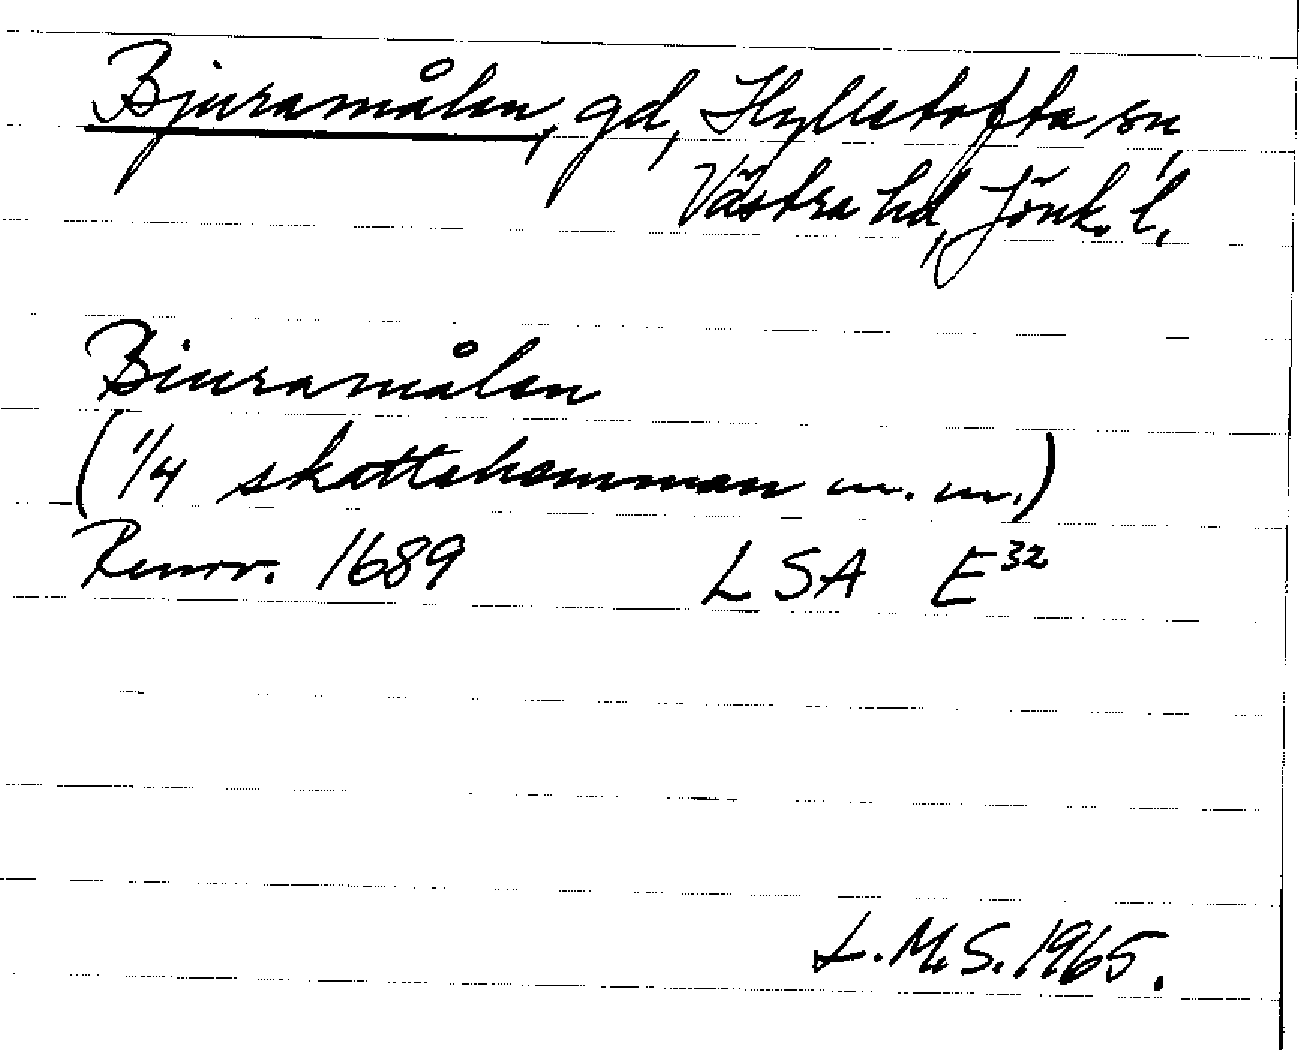 Bjuramålen, gd, Hyllstofta sn,
Västra hd, Jönk. l.
Biuramålen
(1/4 skattehemman m. m.)
Renov. 1689 LSA E³²
L.M.S. 1965.